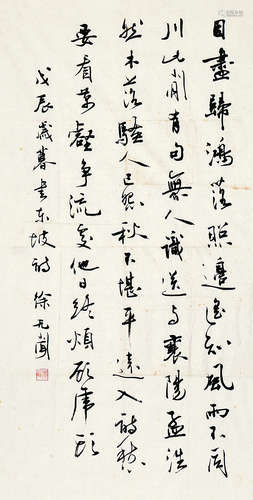 目盡歸鴻落照邊遙知風雨不同
川此間有句無人識送與襄陽孟浩
然木落騷人已怨秋不堪平遠入詩愁
要看萬壑爭流處他日終煩顧虎頭
戊辰歲暮書東坡詩 徐无聞